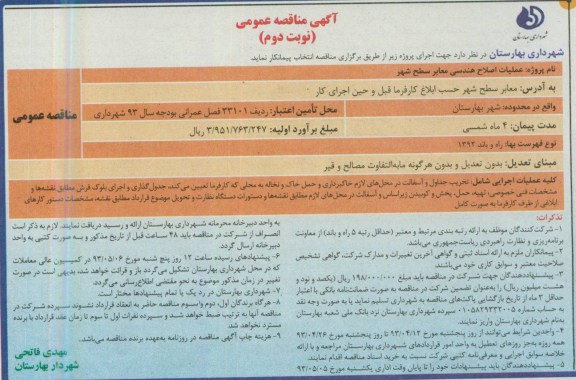 آگهی مناقصه عمومی
(نوبت دوم)
شهرداری بهارستان
شهرداری بهارستان در نظر دارد جهت اجرای پروژه زیر از طریق برگزاری مناقصه انتخاب پیمانکار نماید.
مناقصه عمومی
نام پروژه: عملیات اصلاح هندسی معابر سطح شهر
به آدرس: معابر سطح شهر حسب ابلاغ کارفرما قبل و حین اجرای کار
واقع در محدوده: شهر بهارستان
محل تأمین اعتبار: ردیف ۳۳۱۰۱ فصل عمرانی بودجه سال ۹۳ شهرداری
مدت پیمان: ۴ ماه شمسی
مبلغ برآورد اولیه: ۳/۹۵۱/۷۶۳/۲۴۷ ریال
نوع فهرست بها: راه و باند ۱۳۹۲
مبنای تعدیل: بدون تعدیل و بدون هرگونه مابه‌التفاوت مصالح و قیر
کلیه عملیات اجرایی شامل: تخریب جداول و آسفالت در محل‌های لازم خاکبرداری و حمل خاک و نخاله به محلی که کارفرما تعیین می‌کند، جدول‌گذاری و اجرای بلوک فرش مطابق نقشه‌ها و
مشخصات فنی خصوصی، تهیه، حمل، پخش و کوبیدن زیراساس و آسفالت در محل‌های لازم مطابق نقشه‌ها و دستورات دستگاه نظارت و تحویل موضوع قرارداد مطابق نقشه، مشخصات دستور کارهای
ابلاغی از طرف کارفرما به صورت کامل
تذکرات:
۱- شرکت‌کنندگان موظف به ارائه رتبه بندی مرتبط و معتبر (حداقل رتبه ۵ راه و باند) از معاونت
برنامه‌ریزی و نظارت راهبردی ریاست‌جمهوری می‌باشد.
۲- پیمانکاران ملزم به ارائه اسناد ثبتی و گواهی آخرین تغییرات و مدارک شرکت، گواهی تشخیص
صلاحیت معتبر و سوابق کاری خود می‌باشند.
۳- پیشنهاددهندگان جهت شرکت در مناقصه باید مبلغ ۱۹۸/۰۰۰/۰۰۰ ریال (یکصد و نود و
هشت میلیون ریال) را به‌عنوان تضمین شرکت در مناقصه به صورت ضمانت‌نامه بانکی با اعتبار
حداقل ۳ ماه از تاریخ بازگشایی پاکت‌های مناقصه به شهرداری تسلیم نماید یا به صورت وجه نقد
به حساب شماره سپرده شهرداری بهارستان نزد بانک ملی شعبه بهارستان
به‌نام شهرداری بهارستان واریز نمایند.
۴- واجدین شرایط می‌توانند از روز پنجشنبه مورخ ۹۳/۰۴/۱۲ تا روز پنجشنبه مورخ ۹۳/۰۴/۲۶
همه روزه به‌جز روزهای تعطیل به واحد امور قراردادهای شهرداری بهارستان مراجعه و با ارائه
خلاصه سوابق اجرایی و معرفی‌نامه کتبی شرکت نسبت به خرید اسناد مناقصه اقدام نمایند.
۵- پیشنهاددهندگان باید پیشنهادات خود را تا پایان وقت اداری یکشنبه مورخ ۹۳/۰۵/۰۵
به واحد دبیرخانه محرمانه شهرداری بهارستان ارائه و رسید دریافت نمایند. لازم به ذکر است
انصراف از شرکت در مناقصه باید ۴۸ ساعت قبل از تاریخ مذکور و به صورت کتبی به واحد
دبیرخانه ارسال گردد.
۶- پیشنهادهای رسیده ساعت ۱۲ روز پنج شنبه مورخ ۹۳/۰۵/۰۶ در کمیسیون عالی معاملات
که در محل شهرداری بهارستان تشکیل می‌گردد باز و قرائت خواهد شد، بدیهی است در صورت
تغییر در زمان مذکور موضوع به نحو مقتضی اطلاع‌رسانی می‌گردد.
۷- شهرداری بهارستان در رد یک یا تمام پیشنهادها مختار است.
۸- هرگاه برندگان اول، دوم و سوم مناقصه حاضر به انعقاد قرارداد نشوند سپرده شرکت در
مناقصه آنها به ترتیب ضبط خواهد شد و سپرده نفرات اول تا سوم تا زمان عقد قرارداد با برنده
مسترد نخواهد شد.
۹- هزینه چاپ آگهی مناقصه در روزنامه به‌عهده برنده مناقصه می‌باشد.
مهدی فاتحی
شهردار بهارستان